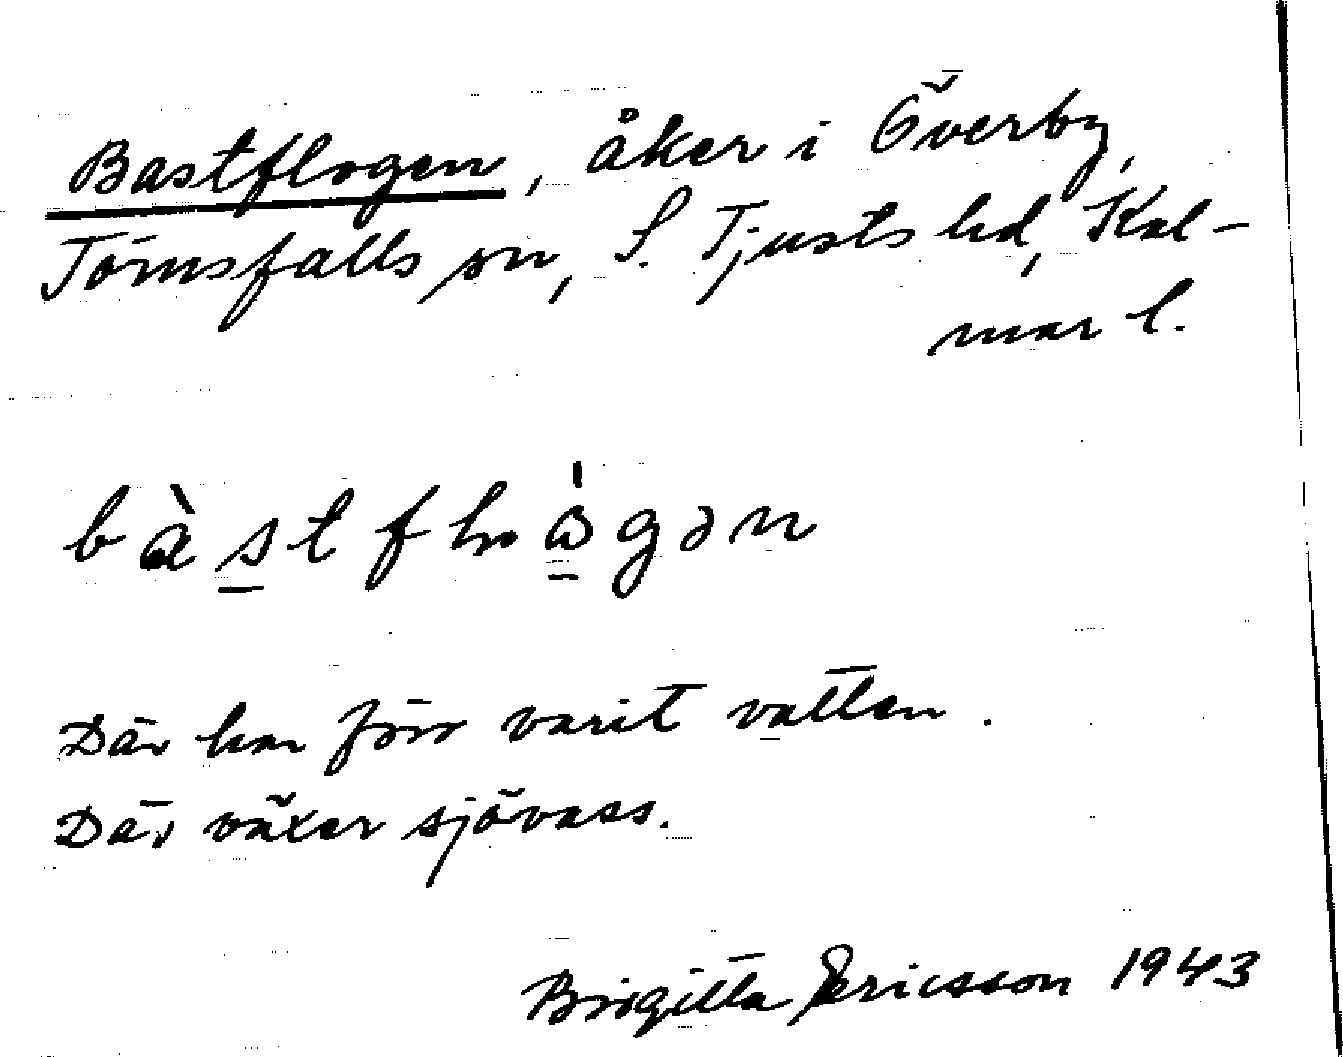 Bastflogen, åker i Överby,
Törnsfalls sn, S. Tjusts hd, Kal-
mar l.
bàstflὼgən
Där har förr varit vatten.
Där växer sjövass.
Birgitta Ericsson 1943